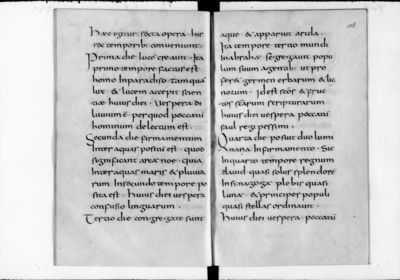 Haec igitur secta opera. his
sec temporib: conveniunt.
Prima die luce creavit. Ita
primo tempore factus est
homo Inparadiso. tamqua
lux. & lucem accepit scien
tiae huius diei. Vespera di
luvium ÷. per quod peccatū
hominum delectum est.
Secunda die firmamentum
Inter aquas positū est. quod
significant arcā noe. quia
Inter aquas maris & pluvia
rum Insecundo tempore po
sita est. huius diei vespera
confusio linguarum.
Tertio die congregate sunt
aque. & apparuit arida.
Ita tempore tertio mundi
Inabraha segregavit popu
lum suum agentib: ut pro
ferā germen erbarum & lig
norum. Id est scōr & fruc
tos scārum scripturarum
huius diei vespera peccatū
saul regi pessimi.
Quarta die posuit duo lumi
naria Infirmamento. sic
Inquarto tempore regnum
david. quasi solis splendore
Insinagoga. plebis quasi
luna. & principes populi
quasi stellas ordinavit.
huius diei vespera. peccatū